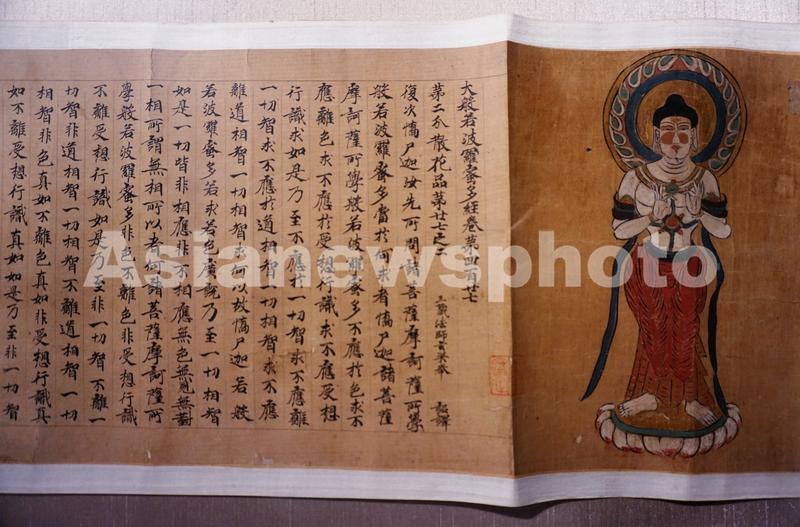 大般若波羅蜜多經卷第四百廿七
第二分散花品第廿七之二
三藏法師玄奘奉 詔譯
復次憍尸迦汝先所問諸菩薩摩訶薩所學
般若波羅蜜多當於何求者憍尸迦諸菩薩
摩訶薩所學般若波羅蜜多不應於色求不
應離色求不應於受想行識求不應離受想
行識求如是乃至不應於一切智求不應離
一切智求不應於道相智一切相智求不應
離道相智一切相智求何以故憍尸迦若般
若波羅蜜多若求若色廣說乃至一切相智
如是一切皆非相應非不相應無色無見無對
一相所謂無相所以者何諸菩薩摩訶薩所
學般若波羅蜜多非色不離色非受想行識
不離受想行識如是乃至非一切智不離一
切智非道相智一切相智不離道相智一切
相智非色真如不離色真如非受想行識真
如不離受想行識真如如是乃至非一切智
Asianewsphoto